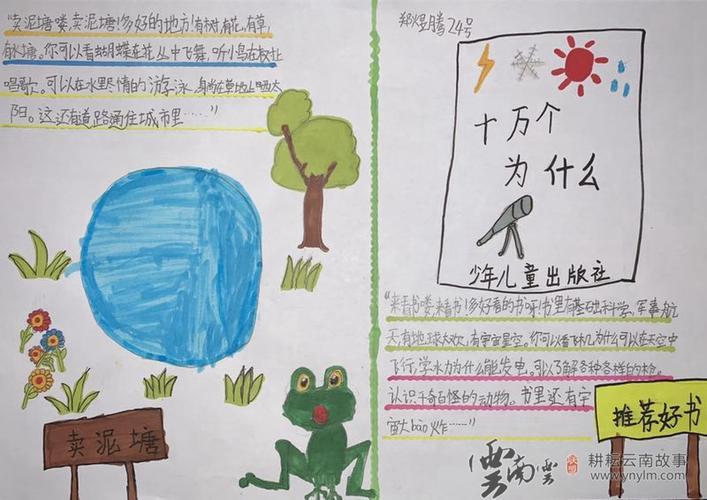 "卖泥塘喽,卖泥塘!多好的地方!有树,有花,有草,
有水塘。你可以看蝴蝶在花丛中飞舞,听小鸟在树上
唱歌。可以在水里尽情的游泳,躺在草地上晒太
阳。这还有道路通住城市里……"
卖泥塘
郑煜腾24号
十万个
为什么
少年儿童出版社
"来看书喽,来看书!多好看的书呀!书里有基础科学、军事航
天,有地球大欢,有宇宙星空。你可以看飞机为什么可以在天空中
飞行,学水力为什么能发电,可以了解各种各样的枪。
认识千奇百怪的动物。书里还有宇
宙大bào炸……"
推荐好书
雲南雲
耕耘云南故事
www.ynylm.com